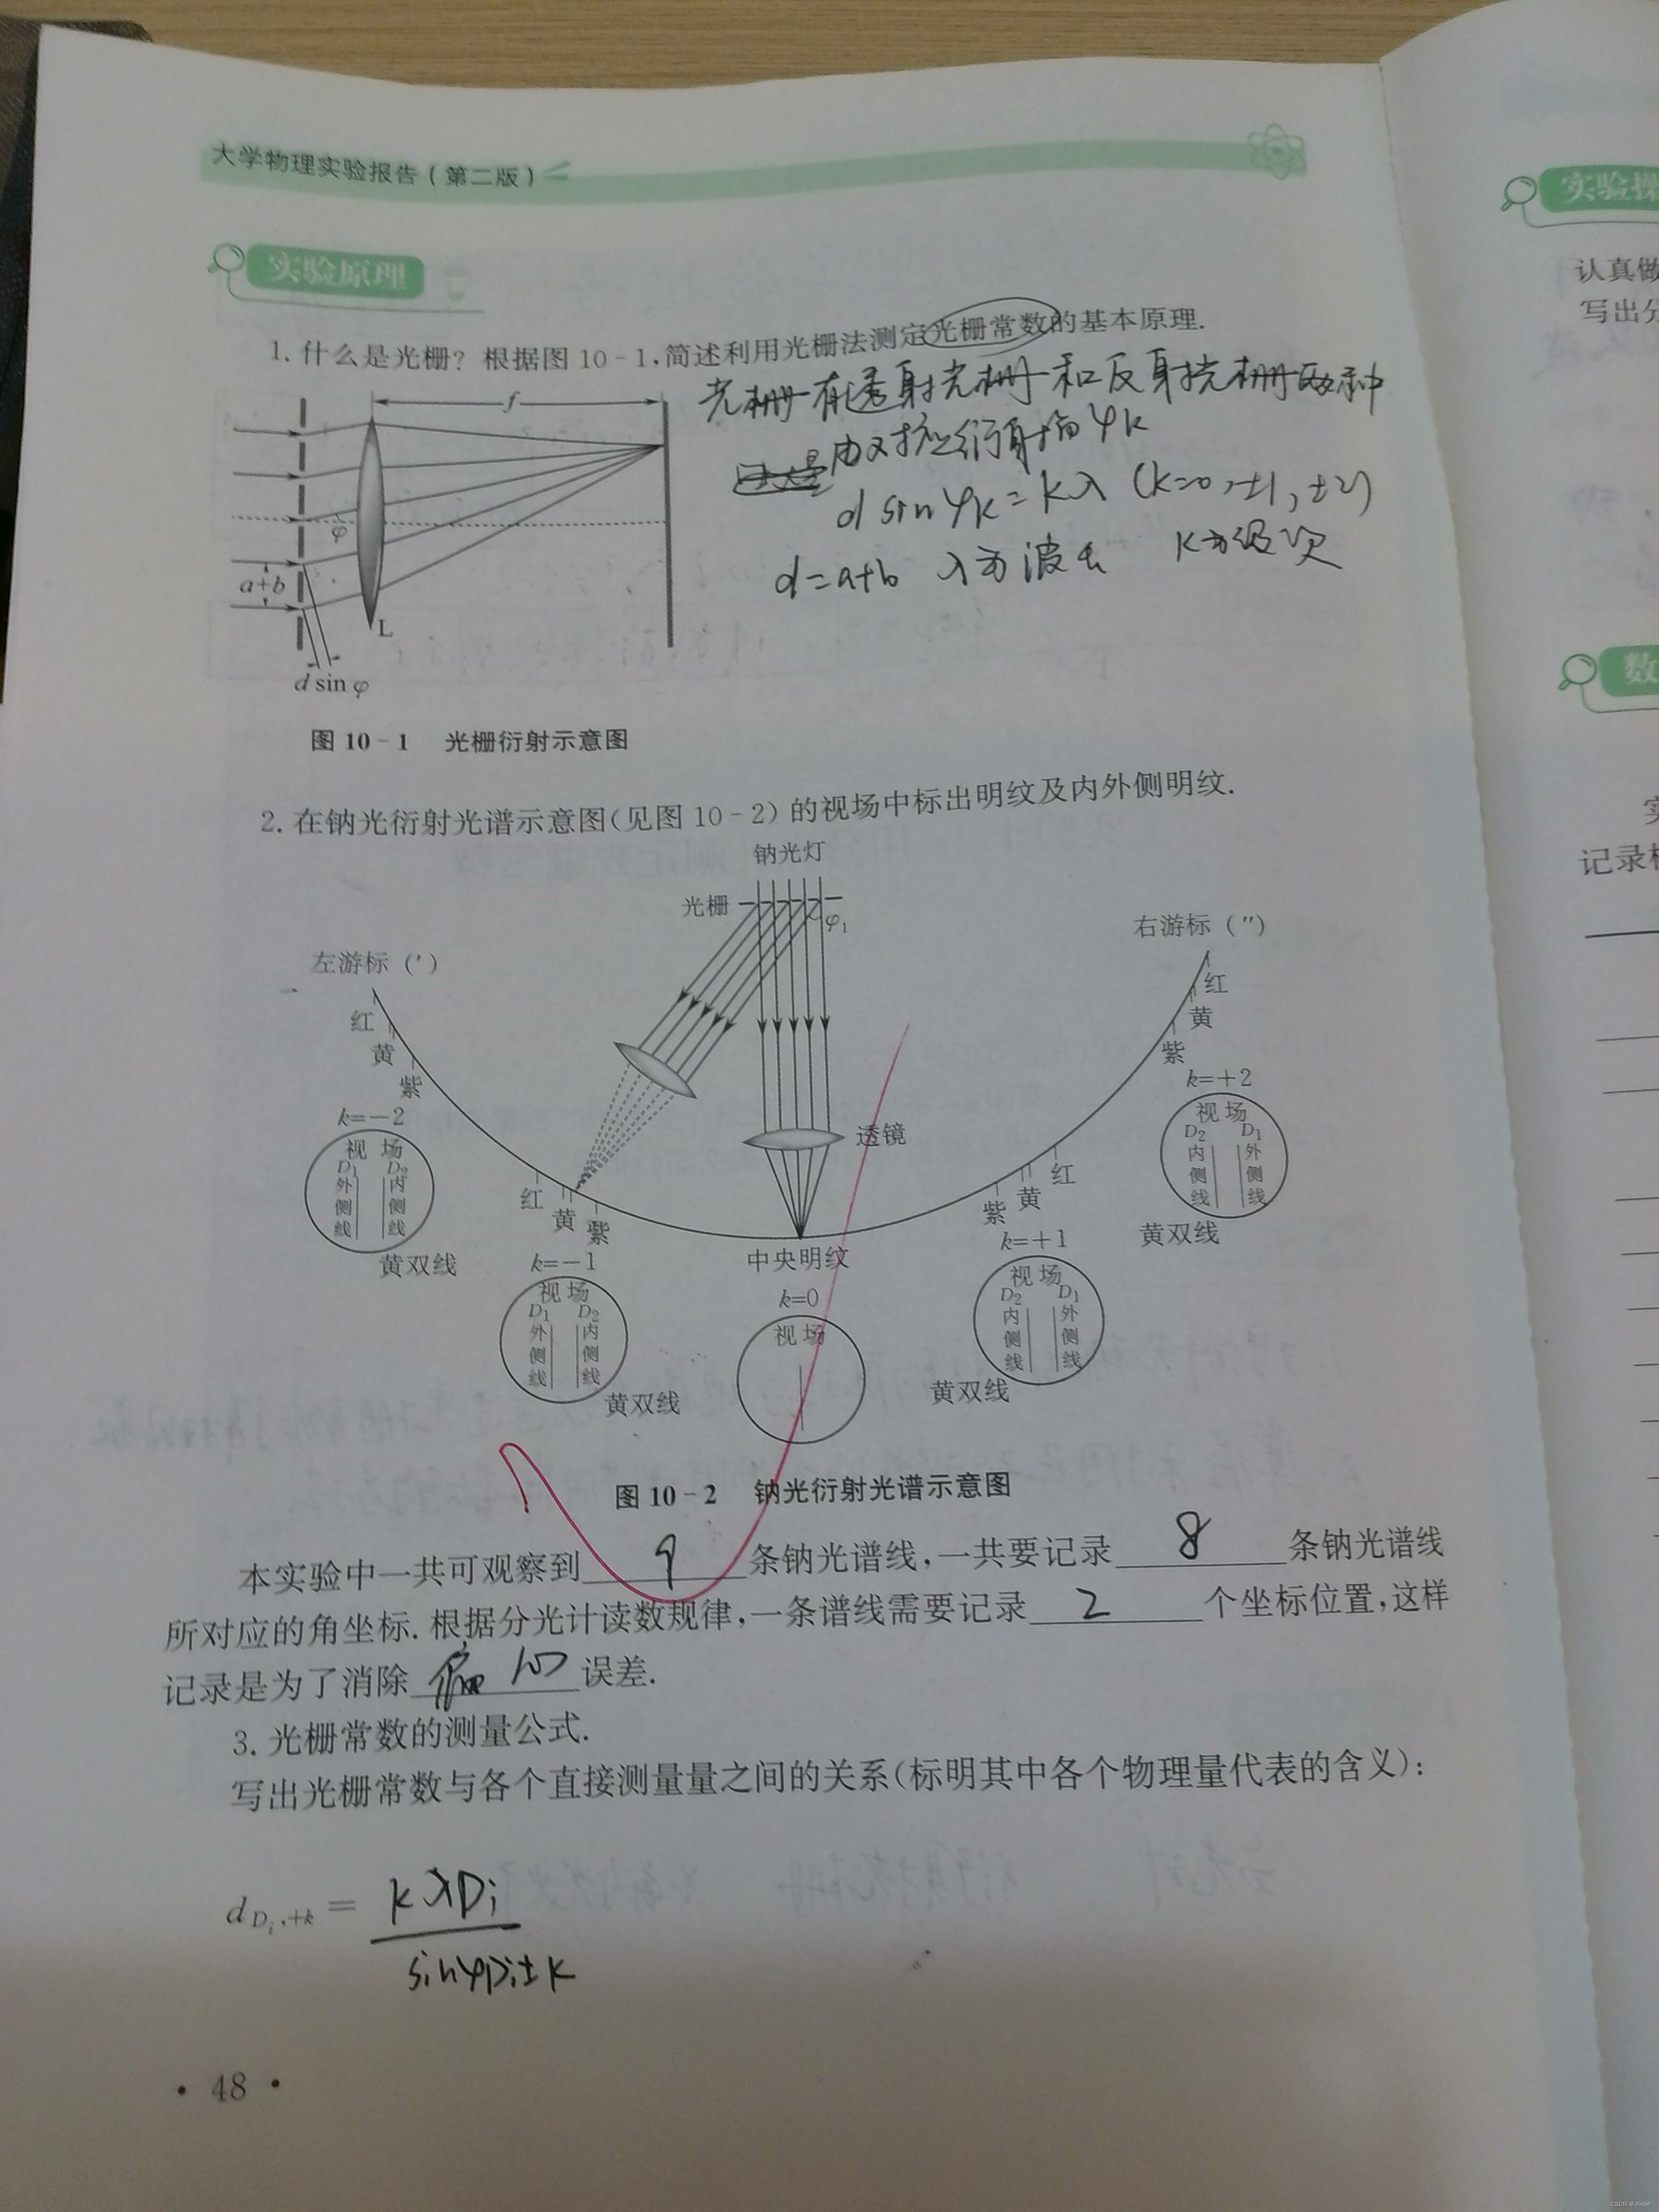 大学物理实验报告(第二版)
实验原理
1. 什么是光栅? 根据图 10-1,简述利用光栅法测定光栅常数的基本原理.
光栅有透射光栅和反射光栅两种
由对应衍射角φk
d sinφk=kλ (k=0,±1,±2)
d=a+b λ为波长 k为级次
f
φ
a+b
L
d sin φ
图 10-1 光栅衍射示意图
2. 在钠光衍射光谱示意图(见图 10-2) 的视场中标出明纹及内外侧明纹.
钠光灯
光栅
φ₁
左游标 (′)
右游标 (″)
红
黄
紫
k=-2
视 场
D₁ D₂
外 内
侧 侧
线 线
黄双线
红
黄
紫
k=-1
视 场
D₁ D₂
外 内
侧 侧
线 线
黄双线
透镜
中央明纹
k=0
视 场
紫
黄
红
k=+1
视 场
D₂ D₁
内 外
侧 侧
线 线
黄双线
红
黄
紫
k=+2
视 场
D₂ D₁
内 外
侧 侧
线 线
黄双线
图 10-2 钠光衍射光谱示意图
本实验中一共可观察到 9 条钠光谱线,一共要记录 8 条钠光谱线
所对应的角坐标. 根据分光计读数规律,一条谱线需要记录 2 个坐标位置,这样
记录是为了消除 偏心 误差.
3. 光栅常数的测量公式.
写出光栅常数与各个直接测量量之间的关系(标明其中各个物理量代表的含义):
d Dᵢ,±k = kλDi
sinφDi±k
· 48 ·
实验操
认真做
写出分
数
记录